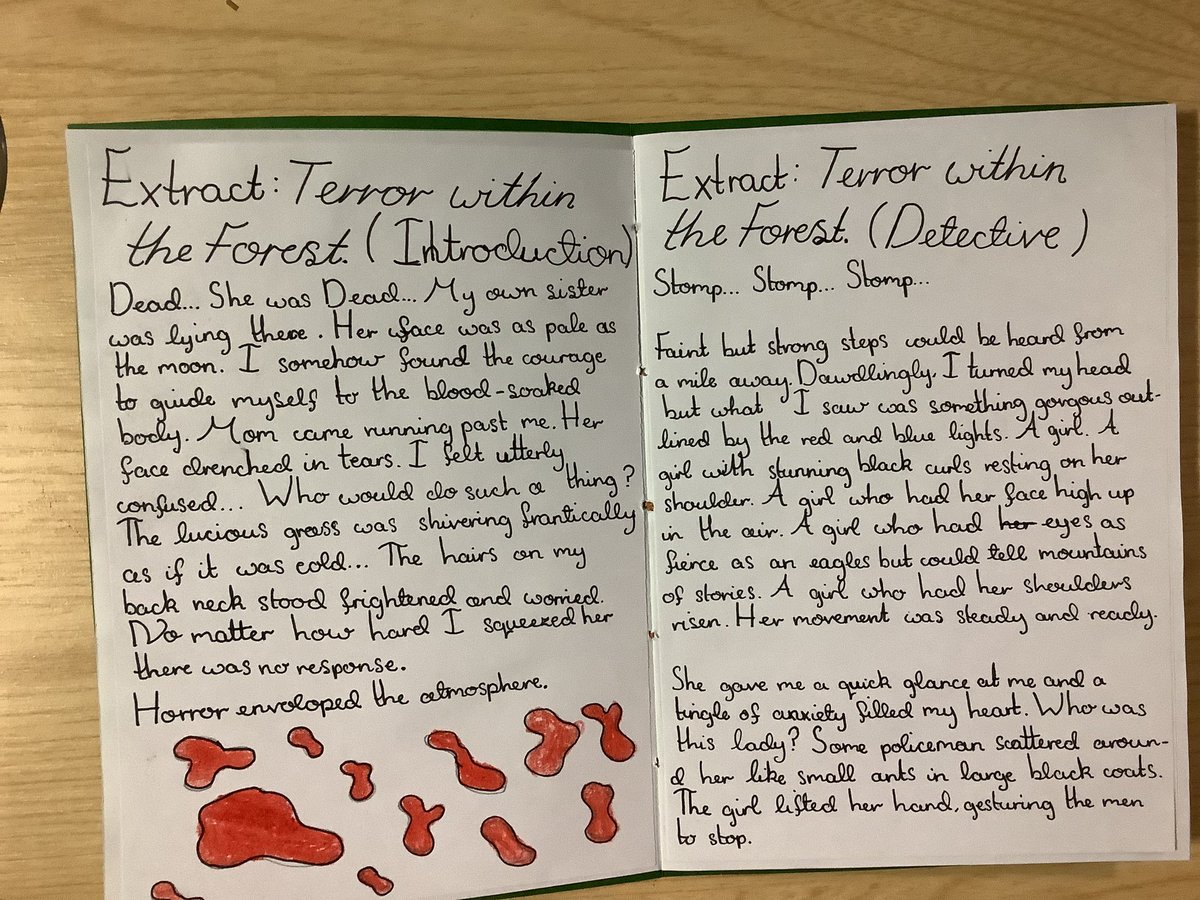 Extract: Terror within
the Forest. (Introduction)
Dead... She was Dead... My own sister
was lying there. Her face was as pale as
the moon. I somehow found the courage
to giude myself to the blood-soaked
body. Mom came running past me. Her
face drenched in tears. I felt utterly
confused... Who would do such a thing?
The lucious grass was shivering frantically
as if it was cold... The hairs on my
back neck stood frightened and worried.
No matter how hard I squeezed her
there was no response.
Horror enveloped the atmosphere.
Extract: Terror within
the Forest. (Detective)
Stomp... Stomp... Stomp...
Faint but strong steps could be heard from
a mile away. Dawdlingly, I turned my head
but what I saw was something gorgous out-
lined by the red and blue lights. A girl. A
girl with stunning black curls resting on her
shoulder. A girl who had her face high up
in the air. A girl who had her eyes as
fierce as an eagles but could tell mountains
of stories. A girl who had her shoulders
risen. Her movement was steady and ready.
She gave me a quick glance at me and a
tingle of anxiety filled my heart. Who was
this lady? Some policeman scattered aroun-
d her like small ants in large black coats.
The girl lifted her hand, gesturing the men
to stop.